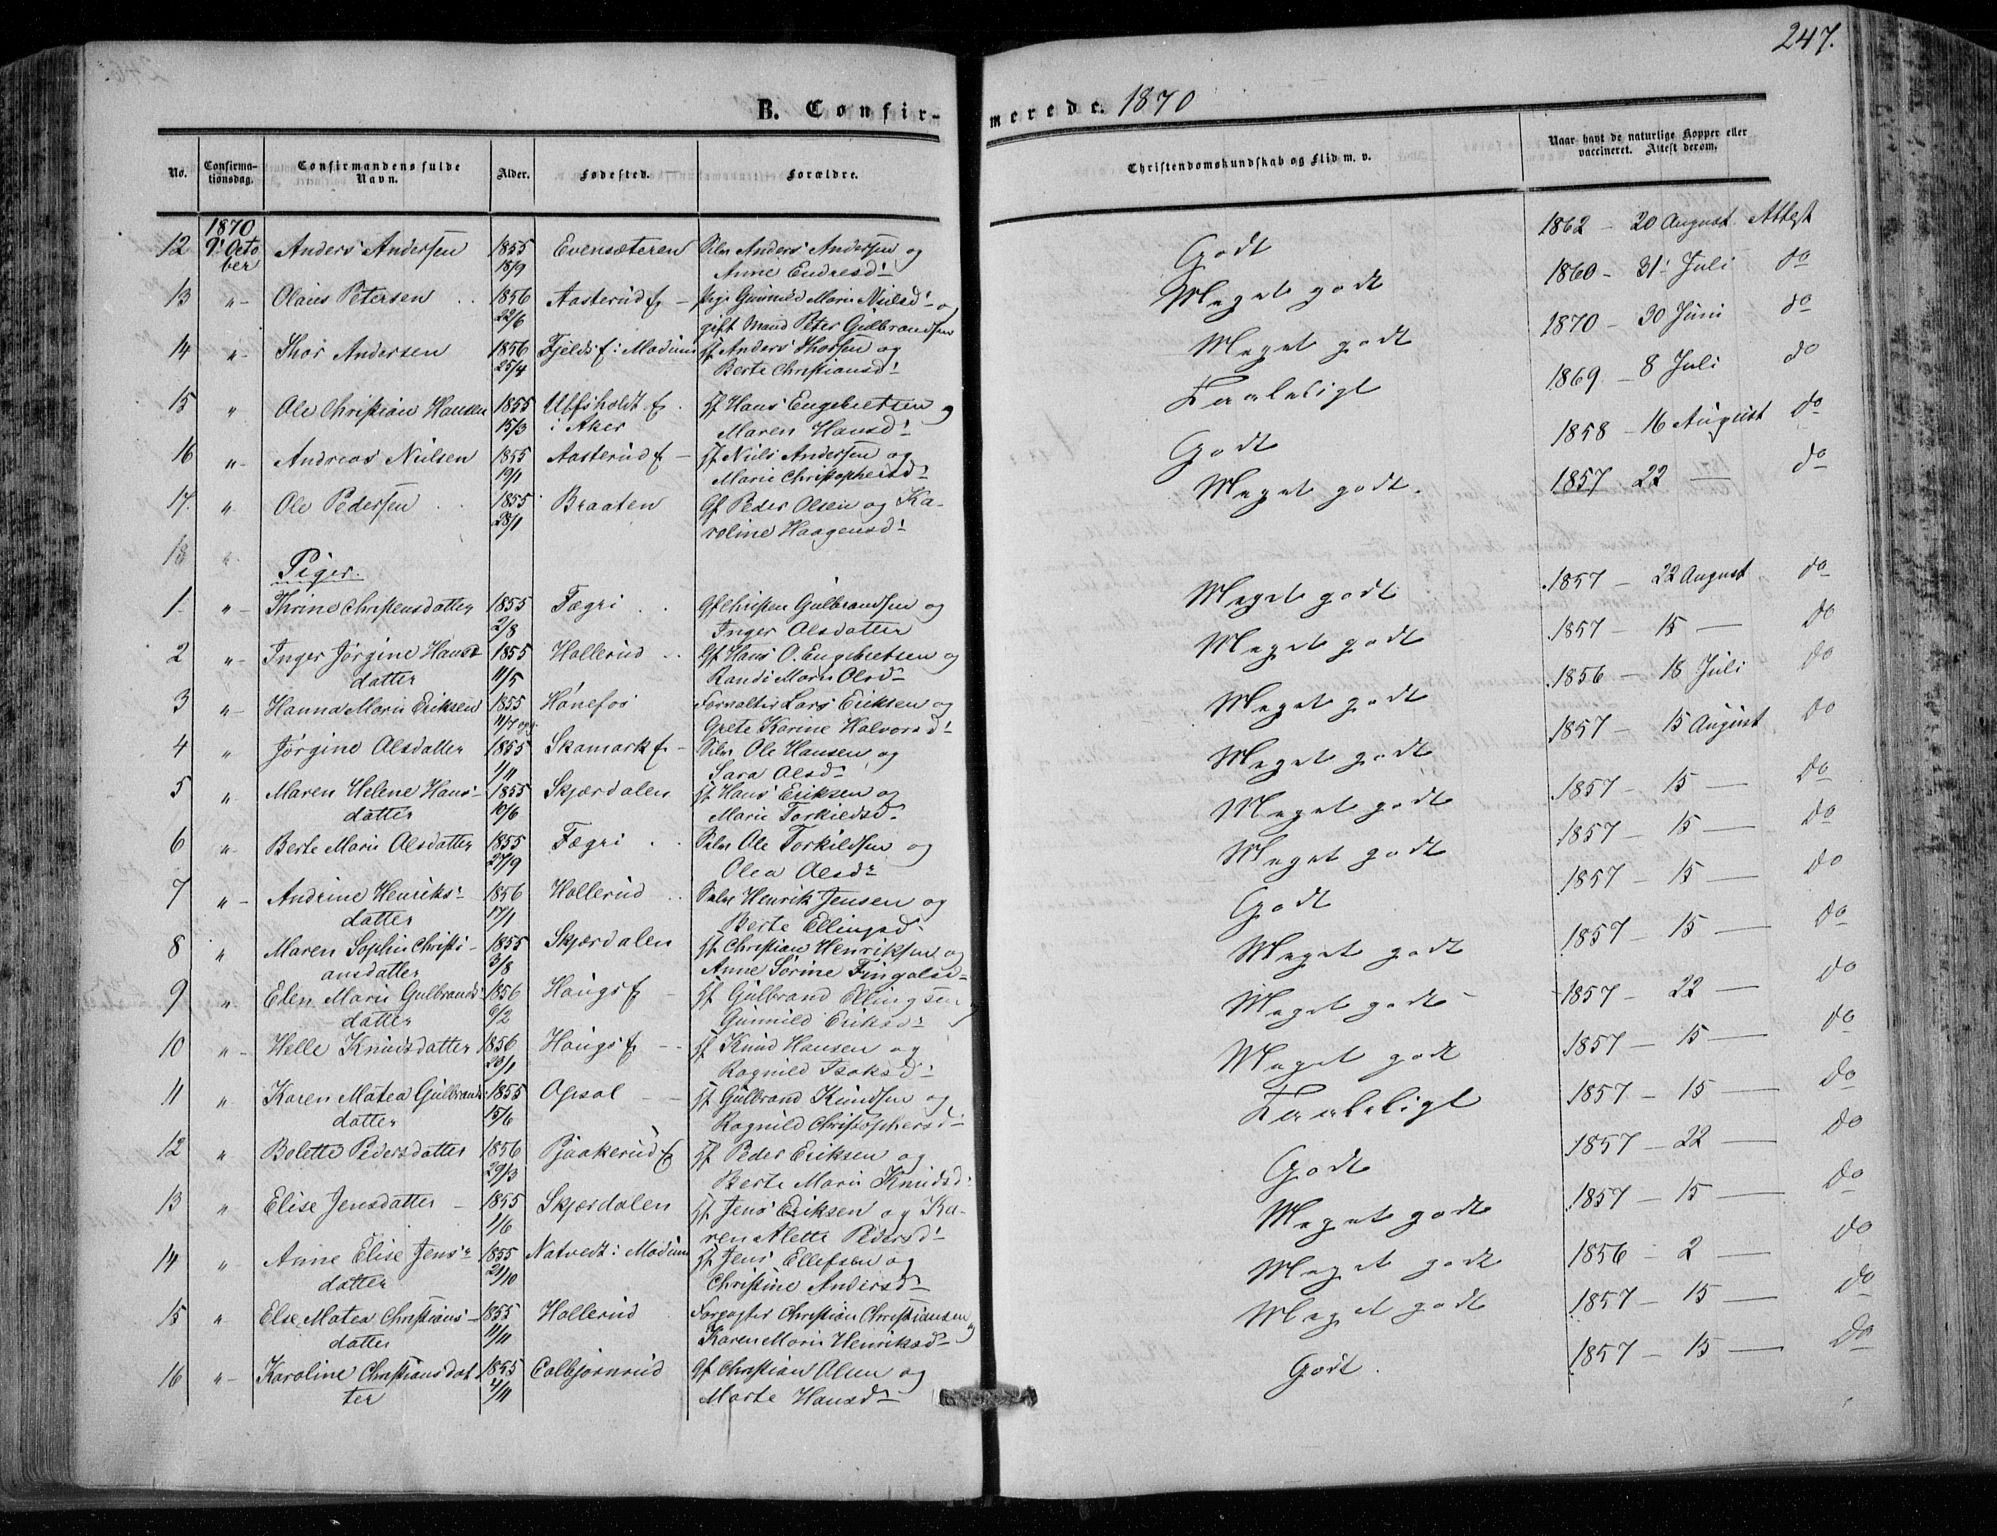 247.
B. Confir-
merede. 1870
No. Confirma-tionsdag. Confirmandens fulde Navn. Alder. Fødested. Forældre. Christendomskundskab og Flid m. v. Naar havt de naturlige Kopper eller vaccineret. Attest derom.
1870
12 9' October Anders Andersen 1855 Evensæteren Anders Andersen og Godt 1862 - 20 August Attest
18/9 Anne Endresd:
13 " Olaus Petersen 1856 Aasterud Gunnild Marie Nielsd: og Meget godt 1860 - 31' Juli do
22/6 gift Mand Peter Gulbrandsen
14 " Thor Andersen 1856 Fjelds i Modum Anders Thorsen og Meget godt 1870 - 30 Juni do
25/4 Berte Christiansd:
15 " Ole Christian Hansen 1855 Hans Engebretsen og Taaleligt 1869 - 8 Juli do
15/3 i Aker Maren Hansd:
16 " Andreas Nielsen 1855 Aasterud Niels Andersen og Godt 1858 - 16 August do
19/1 Marie Christophersd:
17. " Ole Pedersen 1855 Braaten Gf Peder Olsen og Ka- Meget godt. 1857 22 — do
28/1 roline Haagensd:
18 "
Piger.
1 " Thrine Christensdatter 1855 Fægri Gf Christen Gulbrandsen og Meget godt 1857 - 22 August do
2/8 Inger Olsdatter
2 " Inger Jørgine Hans- 1855 Hollerud Gf Hans O. Engebretsen og Meget godt 1857 - 15 — do
datter 11/5 Randi Marie Olsd:
3 " Hanna Marie Eriksen 1855 Hønefos Forvalter Lars Eriksen og Meget godt 1856 - 18 Juli do
11/7 Grete Karine Halvorsd:
4 " Jørgine Olsdatter 1855 Skamark Ole Hansen og Meget godt 1857 - 15 August do
1/11 Sara Olsd:
5 " Maren Helene Hans- 1855 Skjærdalen Hans Eriksen og Meget godt 1857 - 15 — do
datter 10/6 Marie Torkildsd:
6 " Berte Marie Olsdatter 1855 Fægri Ole Torkildsen og Meget godt 1857 - 15 — do
27/9 Olea Olsd:
7 " Andrine Henriks- 1856 Hollerud Henrik Jensen og Godt 1857 - 15 — do
datter 17/1 Berte Ellingsd:
8 " Maren Sophie Christi- 1855 Skjærdalen Christian Henriksen og Meget godt 1857 - 15 — do
ansdatter 3/8 Anne Sørine Fingalsd:
9 " Elen Marie Gulbrands- 1856 Hougs Gulbrand Ellingsen og Meget godt 1857 - 22 — do
datter 6/2 Gunnild Eriksd:
10 " Helle Knudsdatter 1856 Hougs Knud Hansen og Meget godt 1857 - 15 — do
23/1 Ragnild Isaksd:
11 " Karen Matea Gulbrands- 1855 Opsal Gulbrand Knudsen og Taaleligt 1857 - 15 — do
datter 15/6 Ragnild Christophersd:
12 " Bolette Pedersdatter 1856 Pjaakerud Peder Eriksen og Godt 1857 - 22 — do
29/3 Berte Marie Knudsd:
13 " Elise Jensdatter 1855 Skjærdalen Jens Eriksen og Ka- Meget godt 1857 - 15 — do
1/6 ren Alette Pedersd:
14 " Anne Elise Jens- 1855 Natvedt i Modum Jens Ellefsen og Meget godt 1856 - 2 — do
datter 21/10 Christine Andersd:
15 " Else Matea Christians- 1855 Hollerud Forpagter Christian Christiansen og Meget godt 1857 - 15 — do
datter 11/11 Karen Marie Henriksd:
16 " Karoline Christiansdat- 1855 Colbjørnrud Gf Christian Olsen og Godt. 1857 - 15 — do
ter 4/11 Marte Hansd: